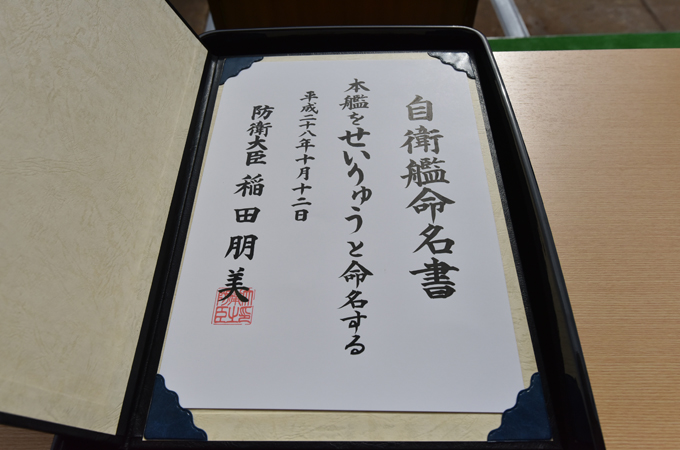 自衛艦命名書
本艦をせいりゅうと命名する
平成二十八年十月十二日
防衛大臣 稲田朋美